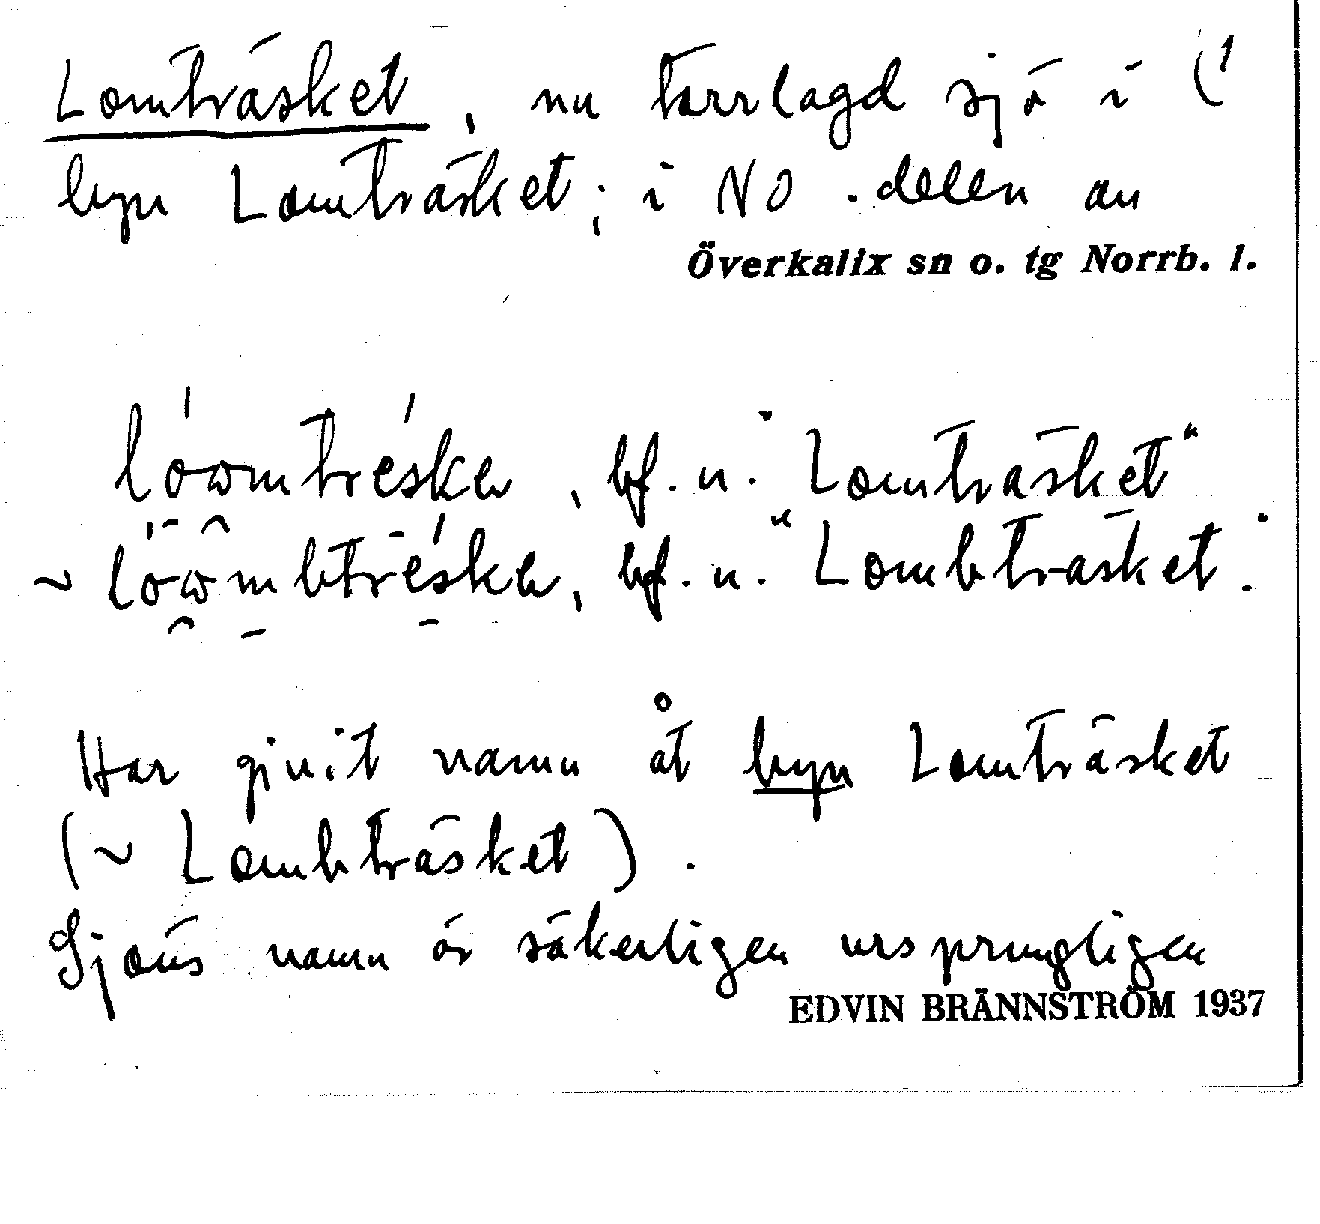 Lomträsket, nu torrlagd sjö i (1
byn Lomträsket; i NO. delen av
Överkalix sn o. tg Norrb. l.
bf. n. "Lomträsket"
~ bf. n. "Lombträsket".
Har givit namn åt byn Lomträsket
(~ Lombträsket).
Sjöns namn är säkerligen ursprungligen
EDVIN BRÄNNSTRÖM 1937